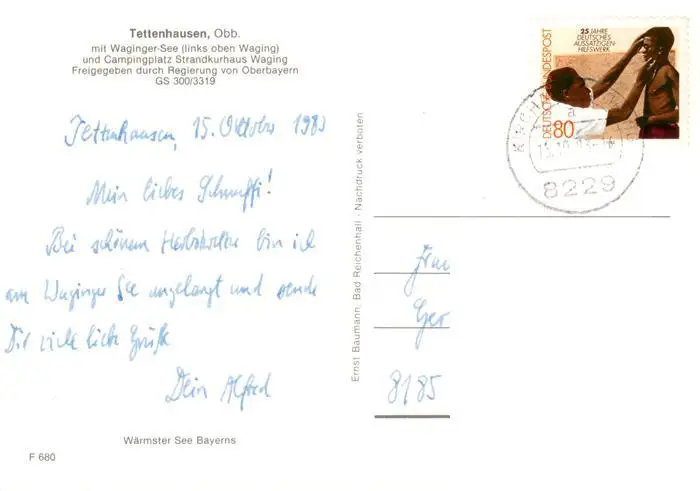 Tettenhausen, Obb.
mit Waginger-See (links oben Waging)
und Campingplatz Strandkurhaus Waging
Freigegeben durch Regierung von Oberbayern
GS 300/3319
Tettenhausen, 15. Oktober 1983
Mein liebes Schnuffi!
Bei schönem Herbstwetter bin ich
am Waginger See angelangt und sende
Dir viele liebe Grüße
Dein Alfred
Wärmster See Bayerns
F 680
Ernst Baumann, Bad Reichenhall · Nachdruck verboten
25 JAHRE
DEUTSCHES
AUSSÄTZIGEN-
HILFSWERK
DEUTSCHE BUNDESPOST
80
8229
Frau
Ger
8185